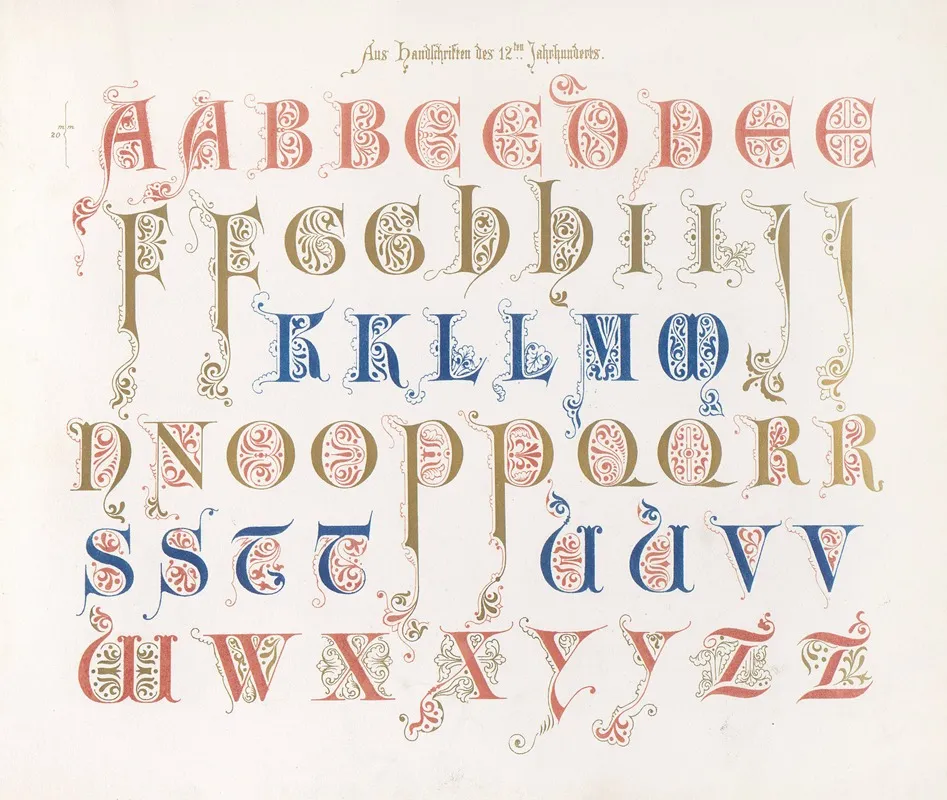 Aus Handschriften des 12ten Jahrhunderts.
20 m/m
A A B B C C D D E E
F F G G h h I I J J
K K L L M M
N N O O P P Q Q R R
S S T T U U V V
W W X X Y Y Z Z